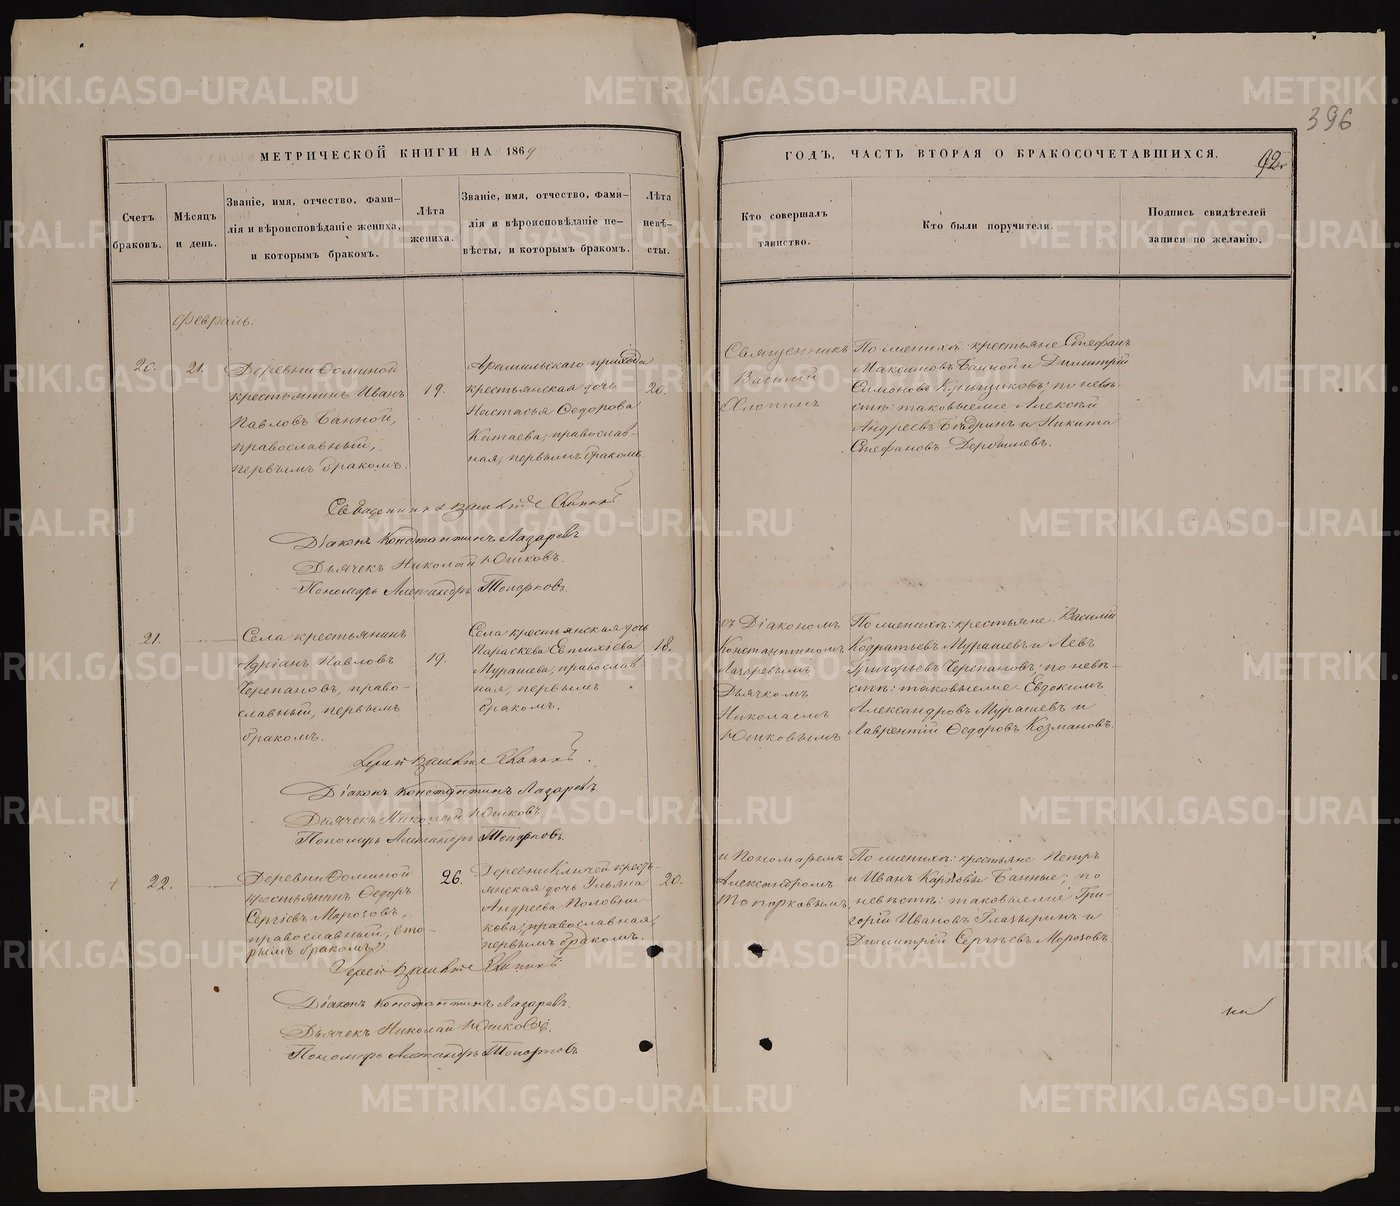 396
МЕТРИЧЕСКОЙ КНИГИ НА 1869
ГОДЪ, ЧАСТЬ ВТОРАЯ О БРАКОСОЧЕТАВШИХСЯ.
92
Счетъ браковъ.
Мѣсяцъ и день.
Званіе, имя, отчество, фами-
лія и вѣроисповѣданіе жениха,
и которымъ бракомъ.
Лѣта жениха.
Званіе, имя, отчество, фами-
лія и вѣроисповѣданіе не-
вѣсты, и которымъ бракомъ.
Лѣта невѣ-
сты.
Кто совершалъ
таинство.
Кто были поручители.
Подпись свидѣтелей
записи по желанію.
Февраль.
20.
21.
Деревни Фоминой
крестьянинъ Иванъ
Павловъ Банной,
православный,
первымъ бракомъ.
19.
Арамильскаго прихода
крестьянская дочь
Настасья Ѳедорова
Катаева, православ-
ная, первымъ бракомъ.
20.
Священникъ
Василій
По женихѣ: крестьяне Стефанъ
Максимовъ Банной и Димитрій
Симоновъ Кальщиковъ: по невѣ-
стѣ: таковыеже Алексѣй
Андреевъ и Никита
Стефановъ Дербышевъ.
Діаконъ Константинъ Лазаревъ
Дьячекъ Николай Юшковъ.
Пономарь Александръ Топорковъ.
21.
Села крестьянинъ
Адріанъ Павловъ
Черепановъ, право-
славный, первымъ
бракомъ.
19.
Села крестьянская дочь
Параскева Евтихіева
Мурашева, православ-
ная, первымъ
бракомъ.
18.
съ Діакономъ
Константиномъ
Лазаревымъ
Дьячкомъ
Николаемъ
Юшковымъ
По женихѣ: крестьяне Василій
Кодратьевъ Мурашевъ и Левъ
Григорьевъ Черепановъ: по невѣ-
стѣ: таковыеже Евдокимъ
Александровъ Мурашевъ и
Лаврентій Ѳедоровъ Козмановъ.
Діаконъ Константинъ Лазаревъ
Дьячекъ Николай Юшковъ.
Пономарь Александръ Топорковъ.
22.
Деревни Фоминой
крестьянинъ Ѳедоръ
Сергіевъ Морозовъ,
православный, вто-
рымъ бракомъ
26.
Деревни Ключей кресть-
янская дочь Ульяна
Андреева Половни
кова, православная,
первымъ бракомъ.
20.
и Пономаремъ
Александромъ
Топорковымъ
По женихѣ: крестьяне Петръ
и Иванъ Карповы Банные; по
невѣстѣ: таковыеже Гри-
горій Ивановъ Глазыринъ и
Димитрій Сергѣевъ Морозовъ.
Іерей
Діаконъ Константинъ Лазаревъ.
Дьячекъ Николай Юшковъ.
Пономарь Александръ Топорковъ
на
METRIKI.GASO-URAL.RU